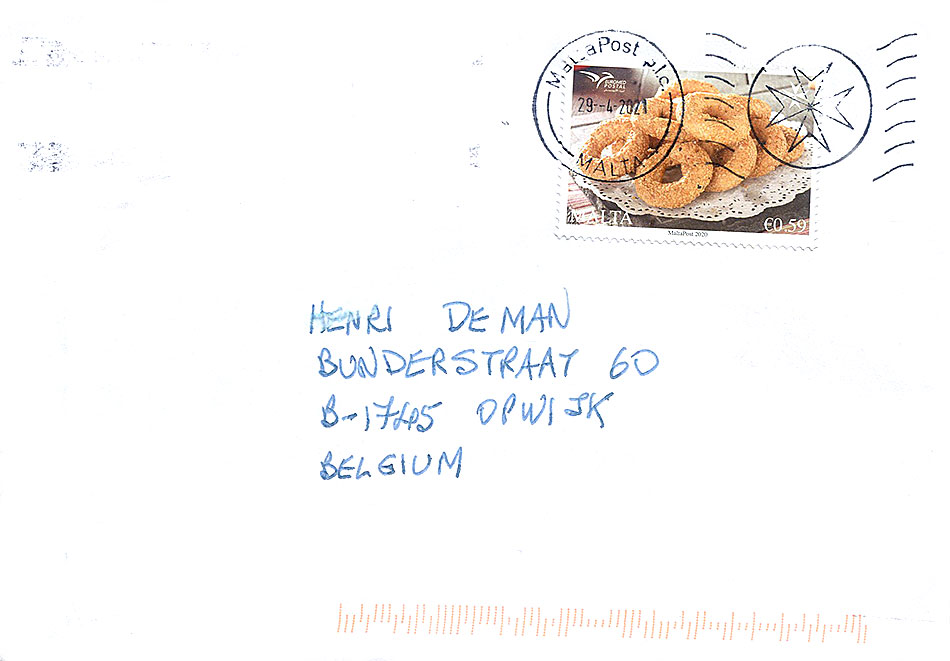 MaltaPost p.l.c.
EUROMED
POSTAL
29--4-2021
MALTA
MALTA
€0.59
MaltaPost 2020
HENRI DE MAN
BUNDERSTRAAT 60
B-1745 OPWIJK
BELGIUM